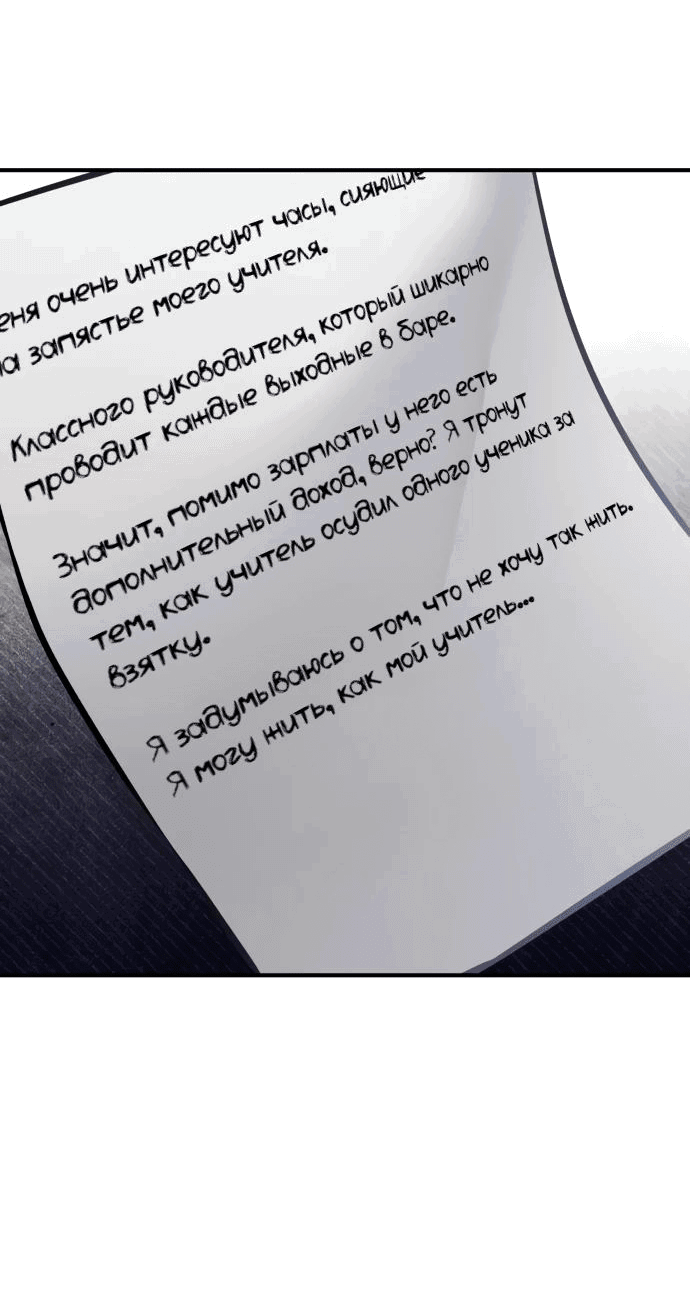 еня очень интересуют часы, сияющие
на запястье моего учителя.
Классного руководителя, который шикарно
проводит каждые выходные в баре.
Значит, помимо зарплаты у него есть
дополнительный доход, верно? Я тронут
тем, как учитель осудил одного ученика за
взятку.
Я задумываюсь о том, что не хочу так жить.
Я могу жить, как мой учитель...